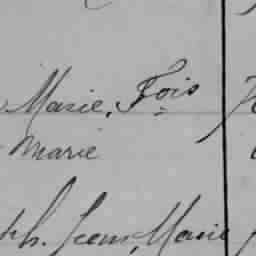 Marie, Fois
Marie
ph. Jean, Marie